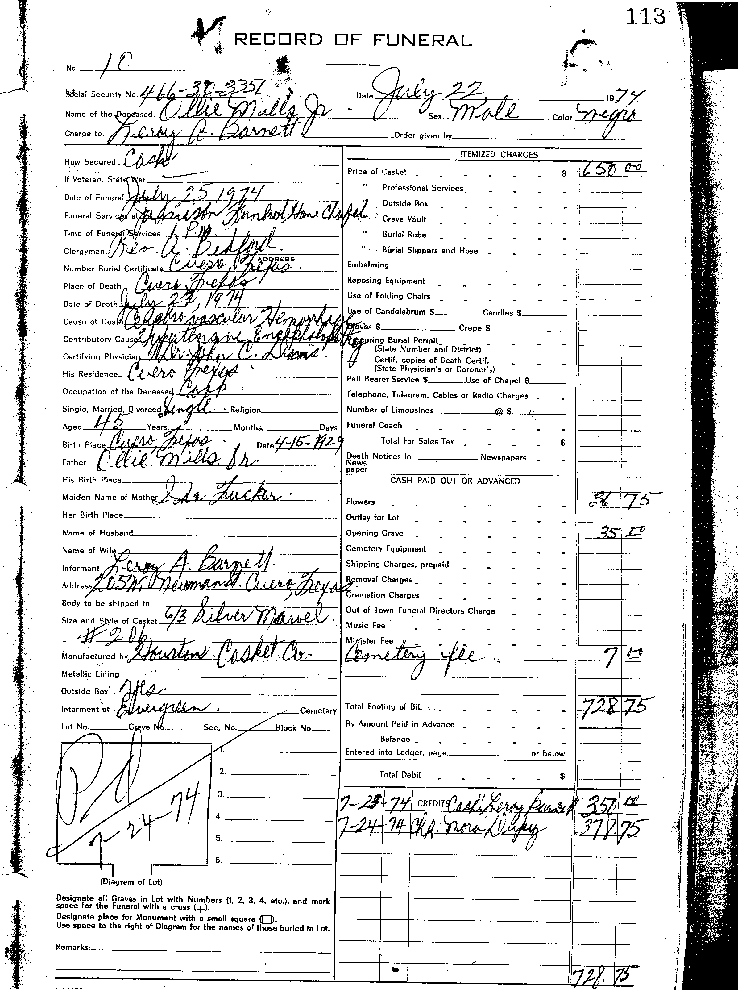 113
RECORD OF FUNERAL
No. 10
Social Security No. 466-38-3351 Date July 22 1974
Name of the Deceased Ollie Mills Jr. Sex Male Color Negro
Charge to Leroy A. Barnett Order given by
How Secured Cash
If Veteran, State War
Date of Funeral July 25, 1974
Funeral Services at Funeral Home Chapel
Time of Funeral Services PM
Clergyman Rev. A. Bedford
ADDRESS
Number Burial Certificate Cuero, Texas
Place of Death Cuero Texas
Date of Death July 22, 1974
Cause of Death Hemorrhage
Contributory Cause Hypertensive
Certifying Physician Dr. John C. Davis
His Residence Cuero Texas
Occupation of the Deceased
Single, Married, Divorced Single Religion
Aged 45 Years Months Days
Birth Place Cuero Texas Date 4-15-1929
Father Ollie Mills Sr.
His Birth Place
Maiden Name of Mother Ida Tucker
Her Birth Place
Name of Husband
Name of Wife
Informant Leroy A. Barnett
Address Cuero, Texas
Body to be shipped to
Size and Style of Casket 6/3 Silver Marvel
Manufactured by Houston Casket Co.
Metallic Lining
Outside Box Yes
Interment at Evergreen Cemetery
Lot No. Grave No. Sec. No. Block No.
1.
2.
3.
4.
5.
6.
Pd
7-24-74
(Diagram of Lot)
Designate all Graves in Lot with Numbers (1, 2, 3, 4, etc.), and mark
space for the Funeral with a cross (+).
Designate place for Monument with a small square (□).
Use space to the right of Diagram for the names of those buried in Lot.
Remarks:
ITEMIZED CHARGES
Price of Casket $ 650 00
" Professional Services
" Outside Box
" Grave Vault
" Burial Robe
" Burial Slippers and Hose
Embalming
Reposing Equipment
Use of Folding Chairs
Use of Candelabrum $ Candles $
$ Crepe $
Burial Permit
(State Number and District)
Certif. copies of Death Certif.
(State Physician's or Coroner's)
Pall Bearer Service $ Use of Chapel $
Telephone, Telegram, Cables or Radio Charges
Number of Limousines @ $
Funeral Coach
Total For Sales Tax $
Death Notices in Newspapers
News
paper
CASH PAID OUT OR ADVANCED
Flowers 36 75
Outlay for Lot
Opening Grave 35 00
Cemetery Equipment
Shipping Charges, prepaid
Removal Charges
Cremation Charges
Out of Town Funeral Directors Charge
Music Fee
Minister Fee
Cemetery fee 7 00
Total Footing of Bill 728 75
By Amount Paid in Advance
Balance
Entered into Ledger, page or below
Total Debit $
7-23-74 CREDIT Cash Leroy Barnett 350 00
7-24-74 Nora 378 75
728 75